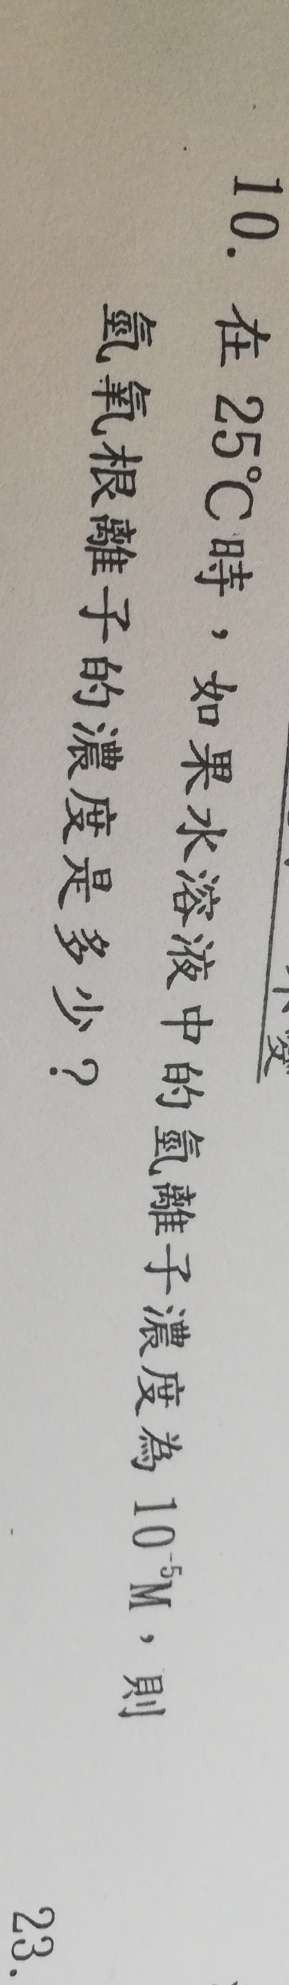 不變
10. 在 25℃時，如果水溶液中的氫離子濃度為 10⁻⁵M，則
氫氧根離子的濃度是多少？
23.